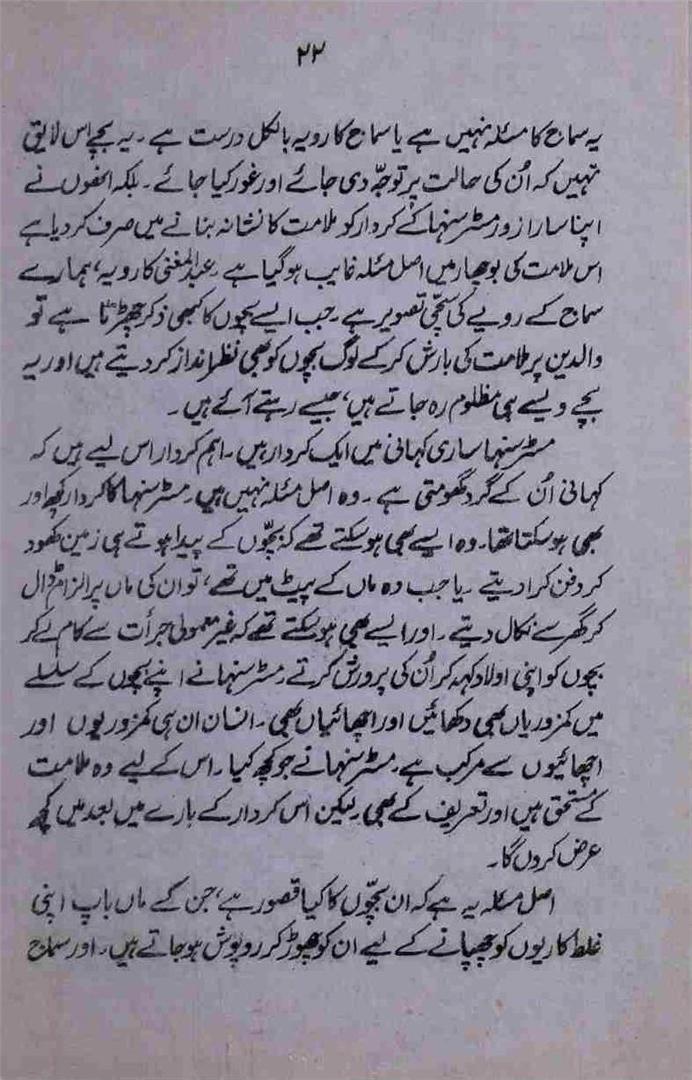 ۲۲
یہ سماج کا مسئلہ نہیں ہے یا سماج کا رویہ بالکل درست ہے۔ یہ بچے اس لایق
نہیں کہ اُن کی حالت پر توجّہ دی جائے اور غور کیا جائے۔ بلکہ انھوں نے
اپنا سارا زور مسٹر سنہا کے کردار کو ملامت کا نشانہ بنانے میں صرف کر دیا ہے
اس ملامت کی بوچھار میں اصل مسئلہ غایب ہو گیا ہے۔ عبدالمغنی کا رویہ، ہمارے
سماج کے رویے کی سچّی تصویر ہے۔ جب ایسے بچوں کا کبھی ذکر چھڑتا ہے تو
والدین پر ملامت کی بارش کر کے لوگ بچوں کو بھی نظر انداز کر دیتے ہیں اور یہ
بچے ویسے ہی مظلوم رہ جاتے ہیں، جیسے رہتے آئے ہیں۔
مسٹر سنہا ساری کہانی میں ایک کردار ہیں۔ اہم کردار اس لیے ہیں کہ
کہانی اُن کے گرد گھومتی ہے۔ وہ اصل مسئلہ نہیں ہیں۔ مسٹر سنہا کا کردار کچھ اور
بھی ہو سکتا تھا۔ وہ ایسے بھی ہو سکتے تھے کہ بچّوں کے پیدا ہوتے ہی زمین کھود
کر دفن کرا دیتے۔ یا جب وہ ماں کے پیٹ میں تھے، تو ان کی ماں پر الزام ڈال
کر گھر سے نکال دیتے۔ اور ایسے بھی ہو سکتے تھے کہ غیر معمولی جرأت سے کام لے کر
بچوں کو اپنی اولاد کہہ کر اُن کی پرورش کرتے۔ مسٹر سنہا نے اپنے بچوں کے سلسلے
میں کمزوریاں بھی دکھائیں اور اچھائیاں بھی۔ انسان ان ہی کمزوریوں اور
اچھائیوں سے مرکب ہے۔ مسٹر سنہا نے جو کچھ کیا۔ اس کے لیے وہ ملامت
کے مستحق ہیں اور تعریف کے بھی۔ لیکن اس کردار کے بارے میں بعد میں کچھ
عرض کروں گا۔
اصل مسئلہ یہ ہے کہ ان بچّوں کا کیا قصور ہے، جن کے ماں باپ اپنی
غلط کاریوں کو چھپانے کے لیے ان کو چھوڑ کر روپوش ہو جاتے ہیں۔ اور سماج